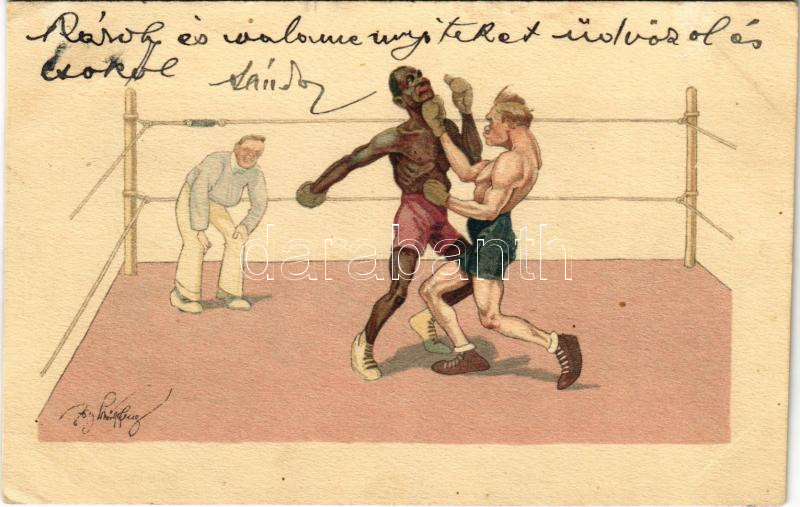 Károly és valamennyiteket üdvözöl és
csókol Sándor
darabanth